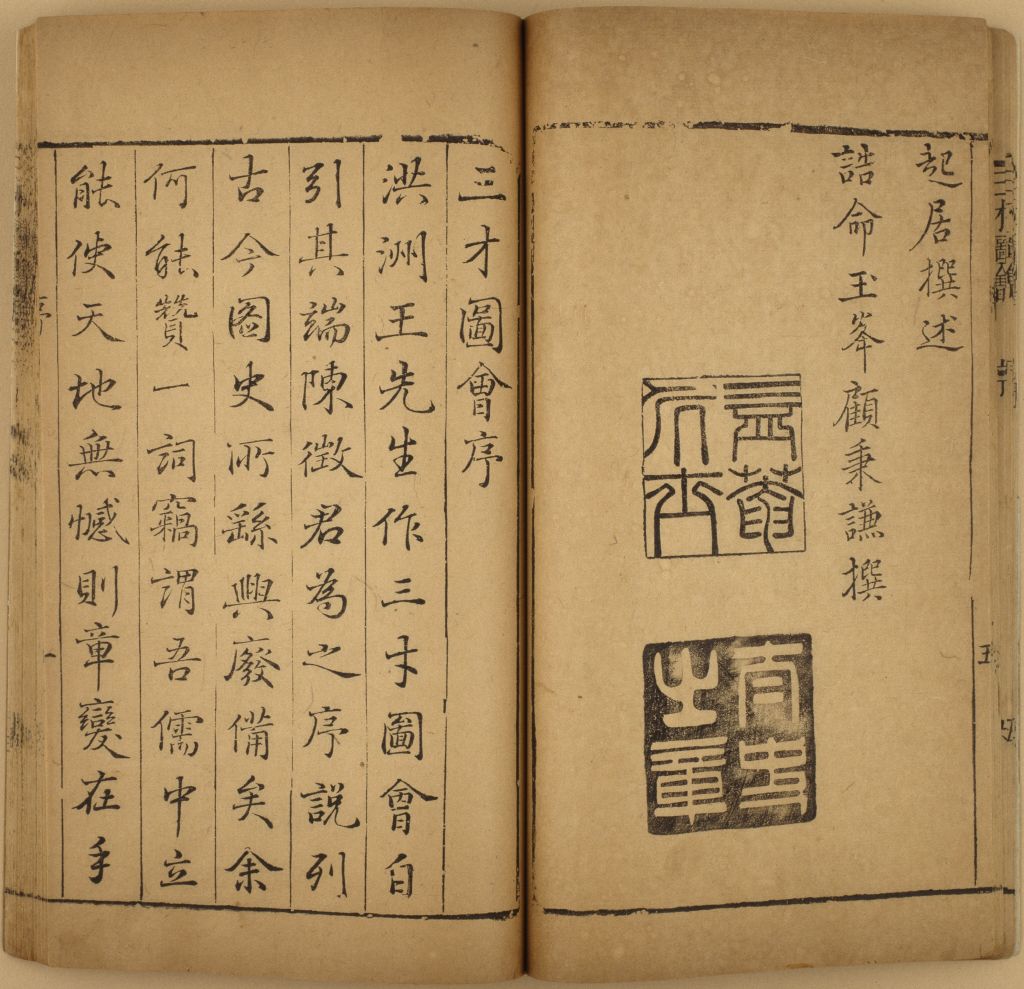 起居撰述
誥命玉峯顧秉謙撰
三才圖會序
洪洲王先生作三才圖會自
引其端陳徵君為之序說列
古今圖史所繇興廢備矣余
何能贊一詞竊謂吾儒中立
能使天地無憾則章變在手
序
一